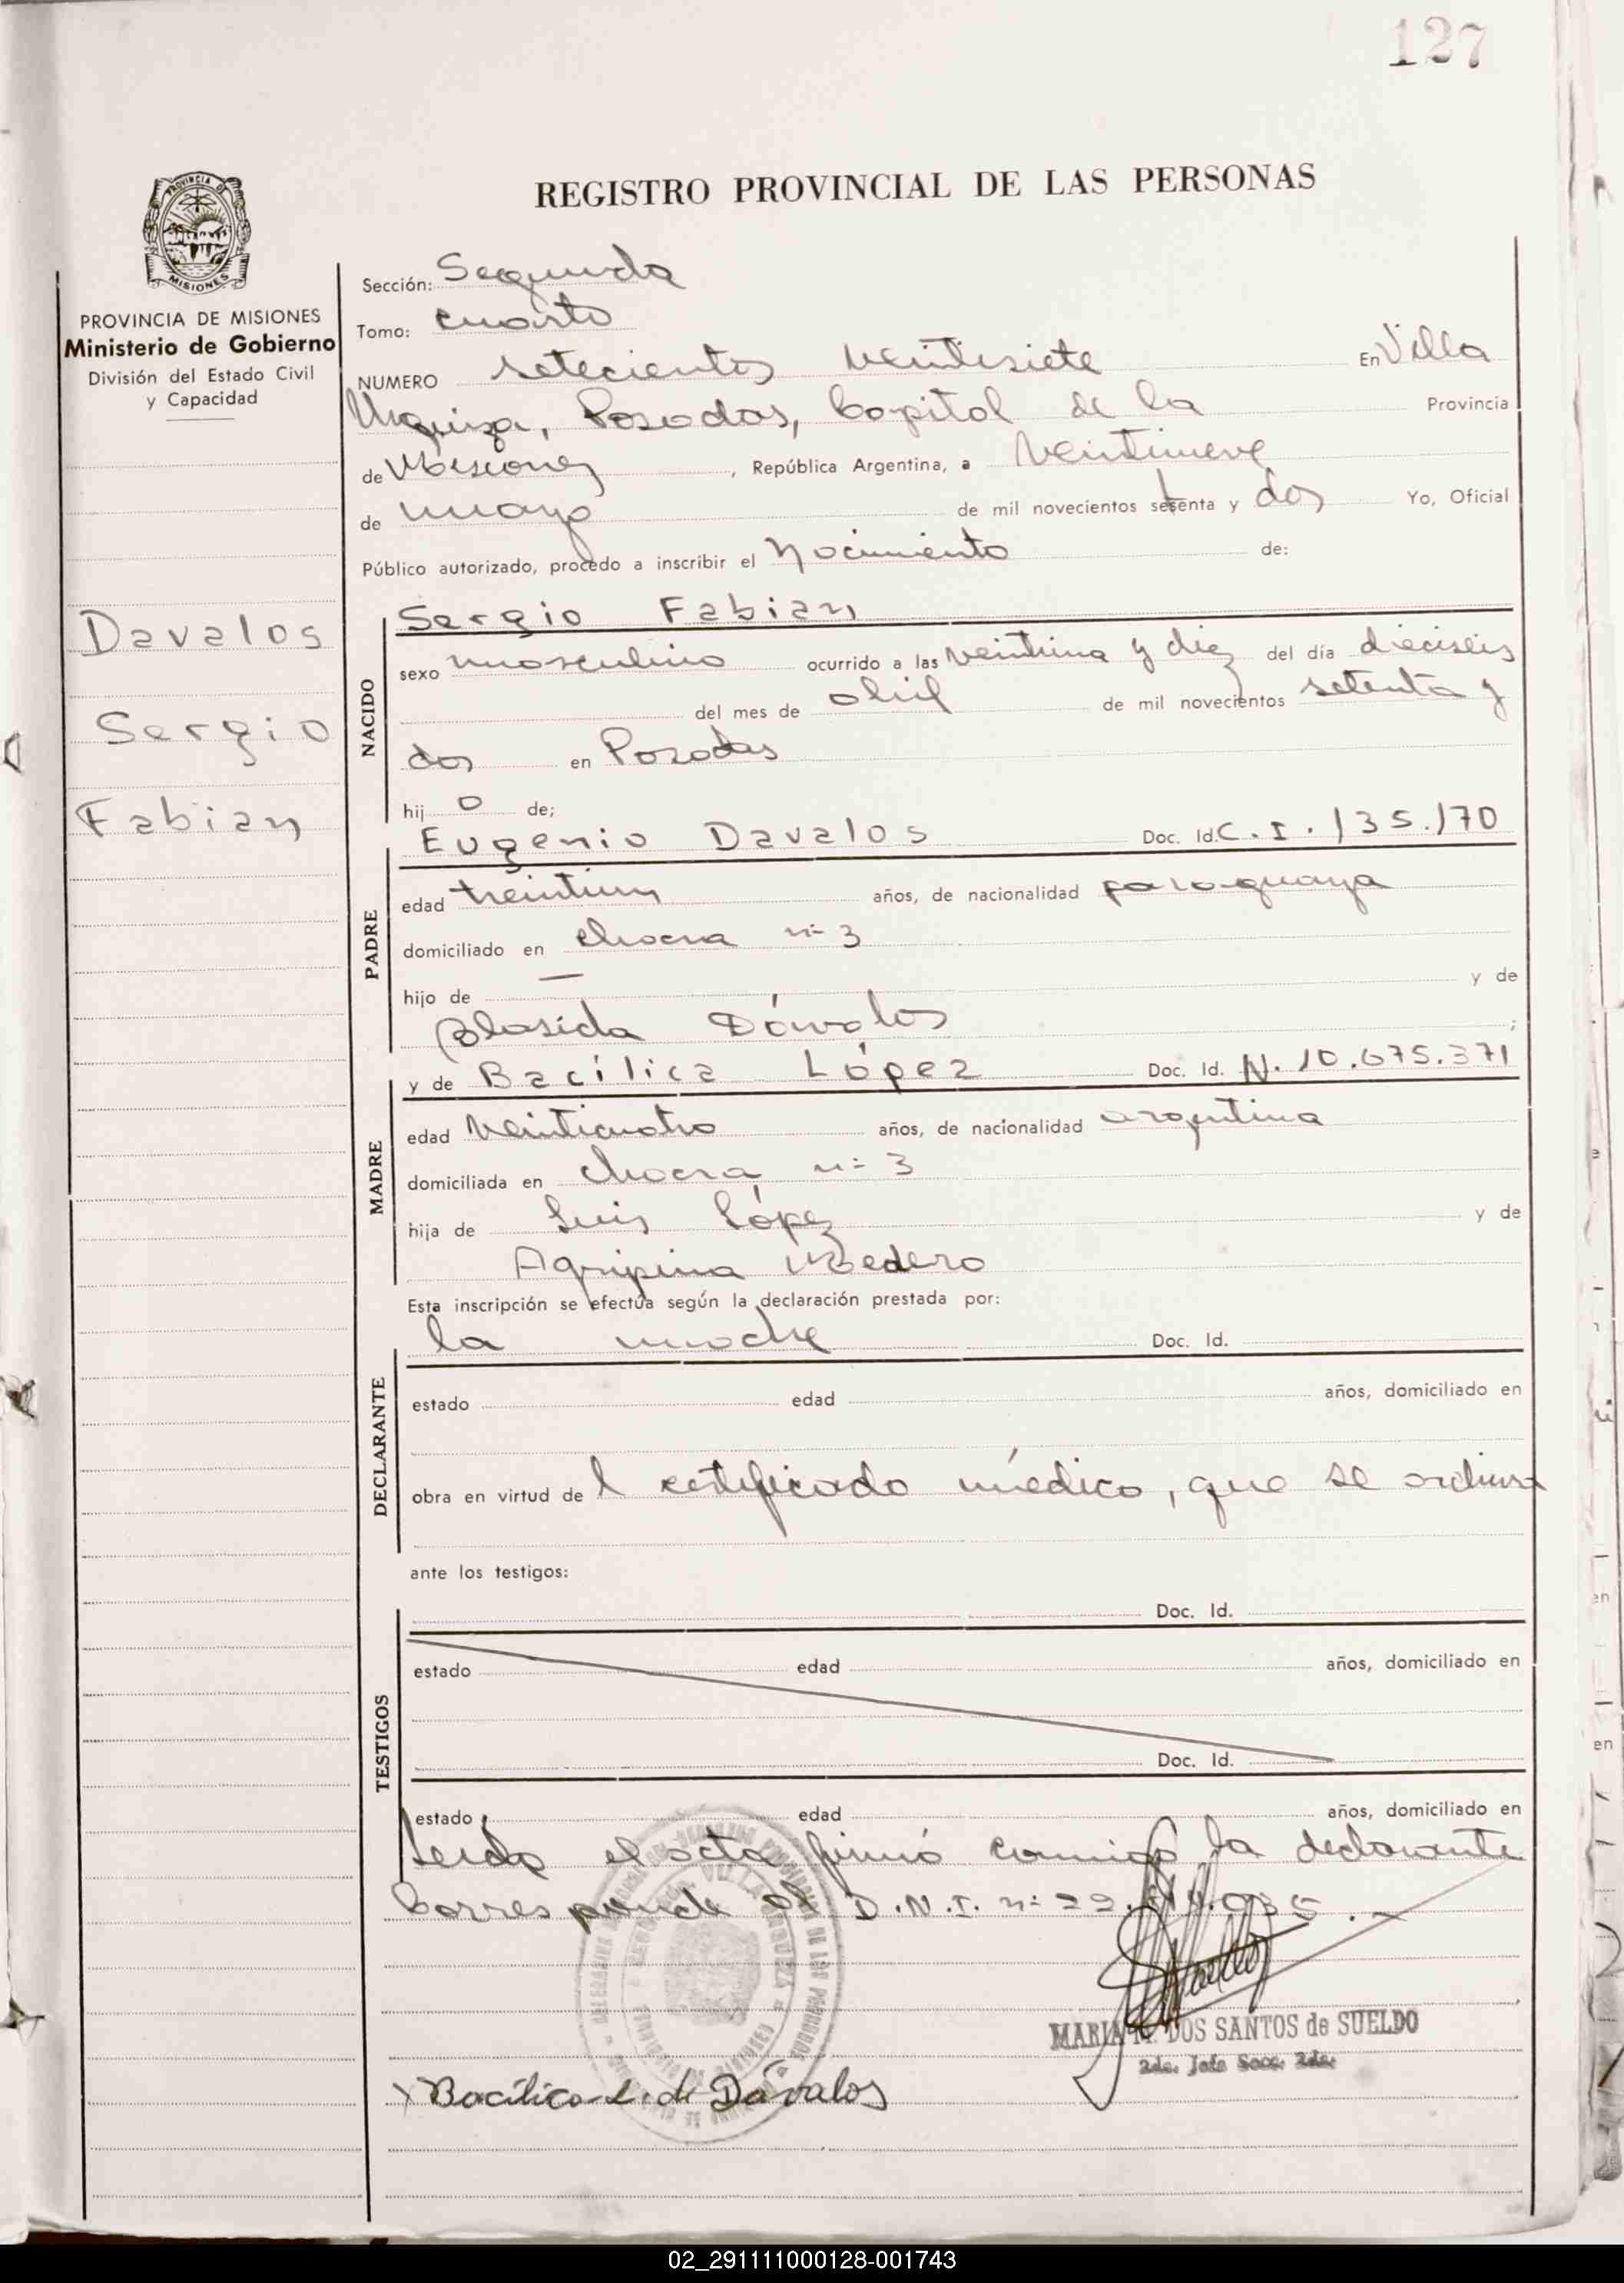 127
PROVINCIA DE
MISIONES
REGISTRO PROVINCIAL DE LAS PERSONAS
PROVINCIA DE MISIONES
Ministerio de Gobierno
División del Estado Civil
y Capacidad
Davalos
Sergio
Fabian
Sección: Segunda
Tomo: cuarto
NUMERO setecientos veintisiete En Villa
Urquiza, Posadas, Capital de la Provincia
de Misiones, República Argentina, a veintinueve
de mayo de mil novecientos setenta y dos Yo, Oficial
Público autorizado, procedo a inscribir el nacimiento de:
NACIDO
Sergio Fabian
sexo masculino ocurrido a las veintiuna y diez del día dieciseis
del mes de abril de mil novecientos setenta y
dos en Posadas
hij o de;
PADRE
Eugenio Davalos Doc. Id. C.I. 135.170
edad treintiun años, de nacionalidad paraguaya
domiciliado en chacra nº 3
hijo de — y de
Blasida Dávalos ;
MADRE
y de Bacílica López Doc. Id. N. 10.675.371
edad veinticuatro años, de nacionalidad argentina
domiciliada en chacra nº 3
hija de Luis López y de
Agripina Medero
Esta inscripción se efectúa según la declaración prestada por:
DECLARANTE
la madre Doc. Id.
estado edad años, domiciliado en
obra en virtud de l certificado médico, que se archiva
ante los testigos:
TESTIGOS
Doc. Id.
estado edad años, domiciliado en
Doc. Id.
estado edad años, domiciliado en
Leida el acta firmó conmigo la declarante
Corresponde al D.N.I. nº 22.
MARIA DOS SANTOS de SUELDO
2da. Jefe Secc. 2da.
x Bacílica L. de Dávalos
02_291111000128-001743